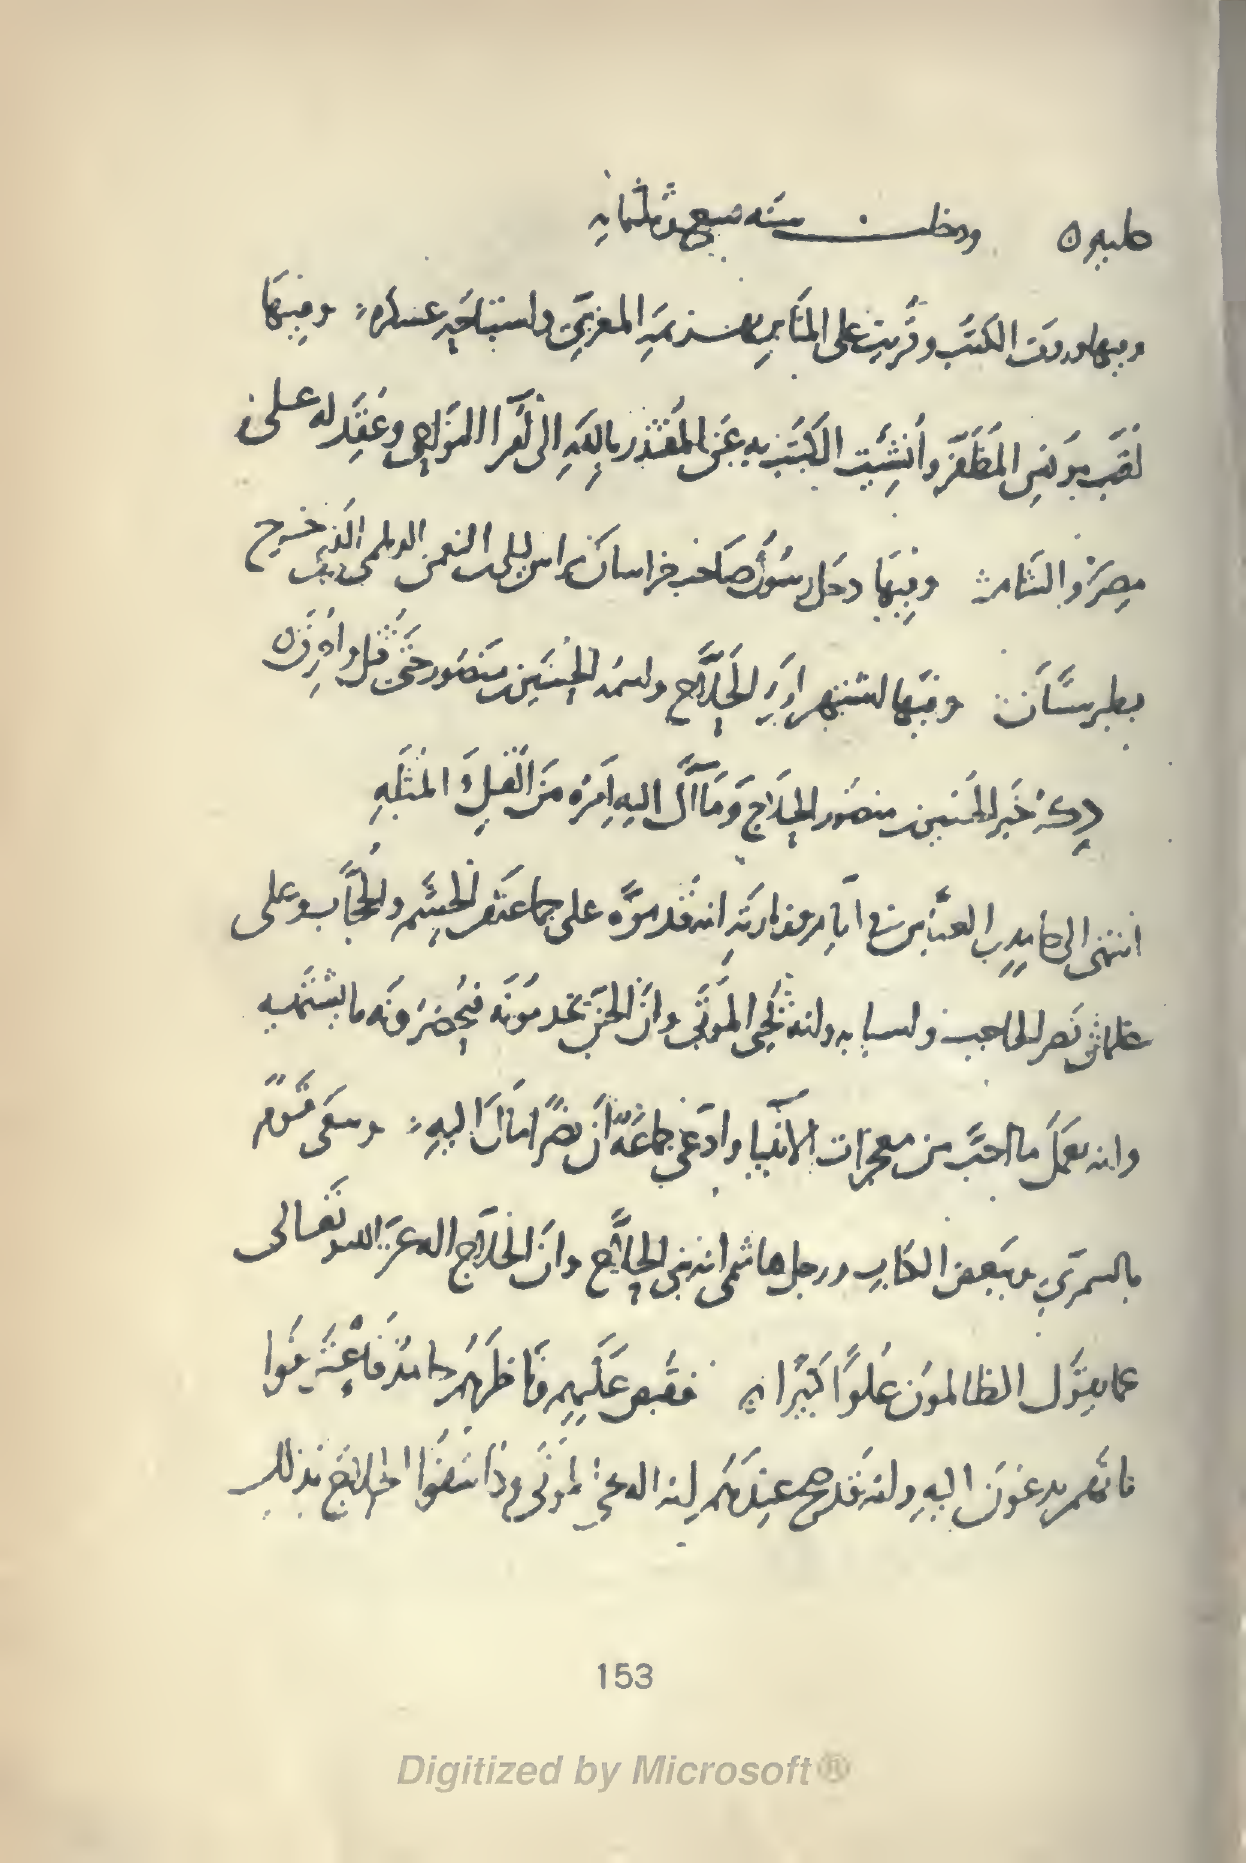 كثيره ودخلت سنه تسع وثلثمايه
وفيها وردت الكتب وقُرِيت على المنابر بهزيمَهِ المغربيّ واستباحَهِ عسكره وفيهَا
لُقّبَ مونس المظَفّر وأنشِيَت الكتب به عَن المقتدر باللهِ الى اُمَرا النوَاحى وعُقِد له على
مصرَ والشام وفيهَا دخل رسُول صَاحب خراسان براس ليلى بن النعمن الديلمى الذى خرج
بطبرستان وفيها اشتهر امر الحَلّاج واسمه الحُسَين بن منصُور حتى قتل واحرِق
ذِكرُ خَبَر الحسين بن منصُور الحلاج وَمَا آلَ اليهِ اَمرُه مِن القَتلِ وَالمُثلَهِ
انتهى الى حامِدِ بن العبّاس فى ايام وزارتهِ انه قد موّه على جماعه من الحشَم والحُجّاب وعلى
غلمان نصر الحاجب واسبابه وانه يُحيى الموتَى وانّ الجنّ يخدمُونَه فيُحضِرُونَه ما يشتهيه
وانه يعمَل ما احبَّ من معجزات الانبيا وادّعى جماعَهٌ أن نصرًا مَال اليهِ وسعَى قومٌ
بالسمرّىِ وببَعض الكتّاب وبرجل هاشمى انه نبى الحلّاج وانّ الحلّاج اله عزّ الله وتعَالى
عما يقول الظالمون عُلوًا كبيرًا فقبض عَلَيهِم وناظرَهُم حامد فاعترَفوا
بانهم يدعُونَ اليهِ وانه قد صحّ عِندَهُم انه اله يحيى الموتَى وكاشَفُوا الحلاج بذلك
153
Digitized by Microsoft®